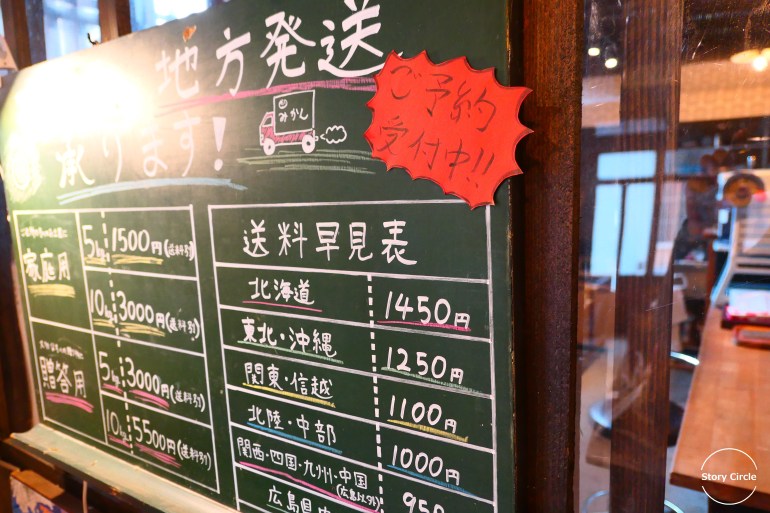 地方発送
承ります!
みかし
ご予約
受付中!!
家庭用
5kg 1500円(送料別)
10kg 3000円(送料別)
贈答用
5kg 3000円(送料別)
10kg 5500円(送料別)
送料早見表
北海道 1450円
東北・沖縄 1250円
関東・信越 1100円
北陸・中部 1000円
関西・四国・九州・中国(広島以外) 950
広島県内
Story Circle